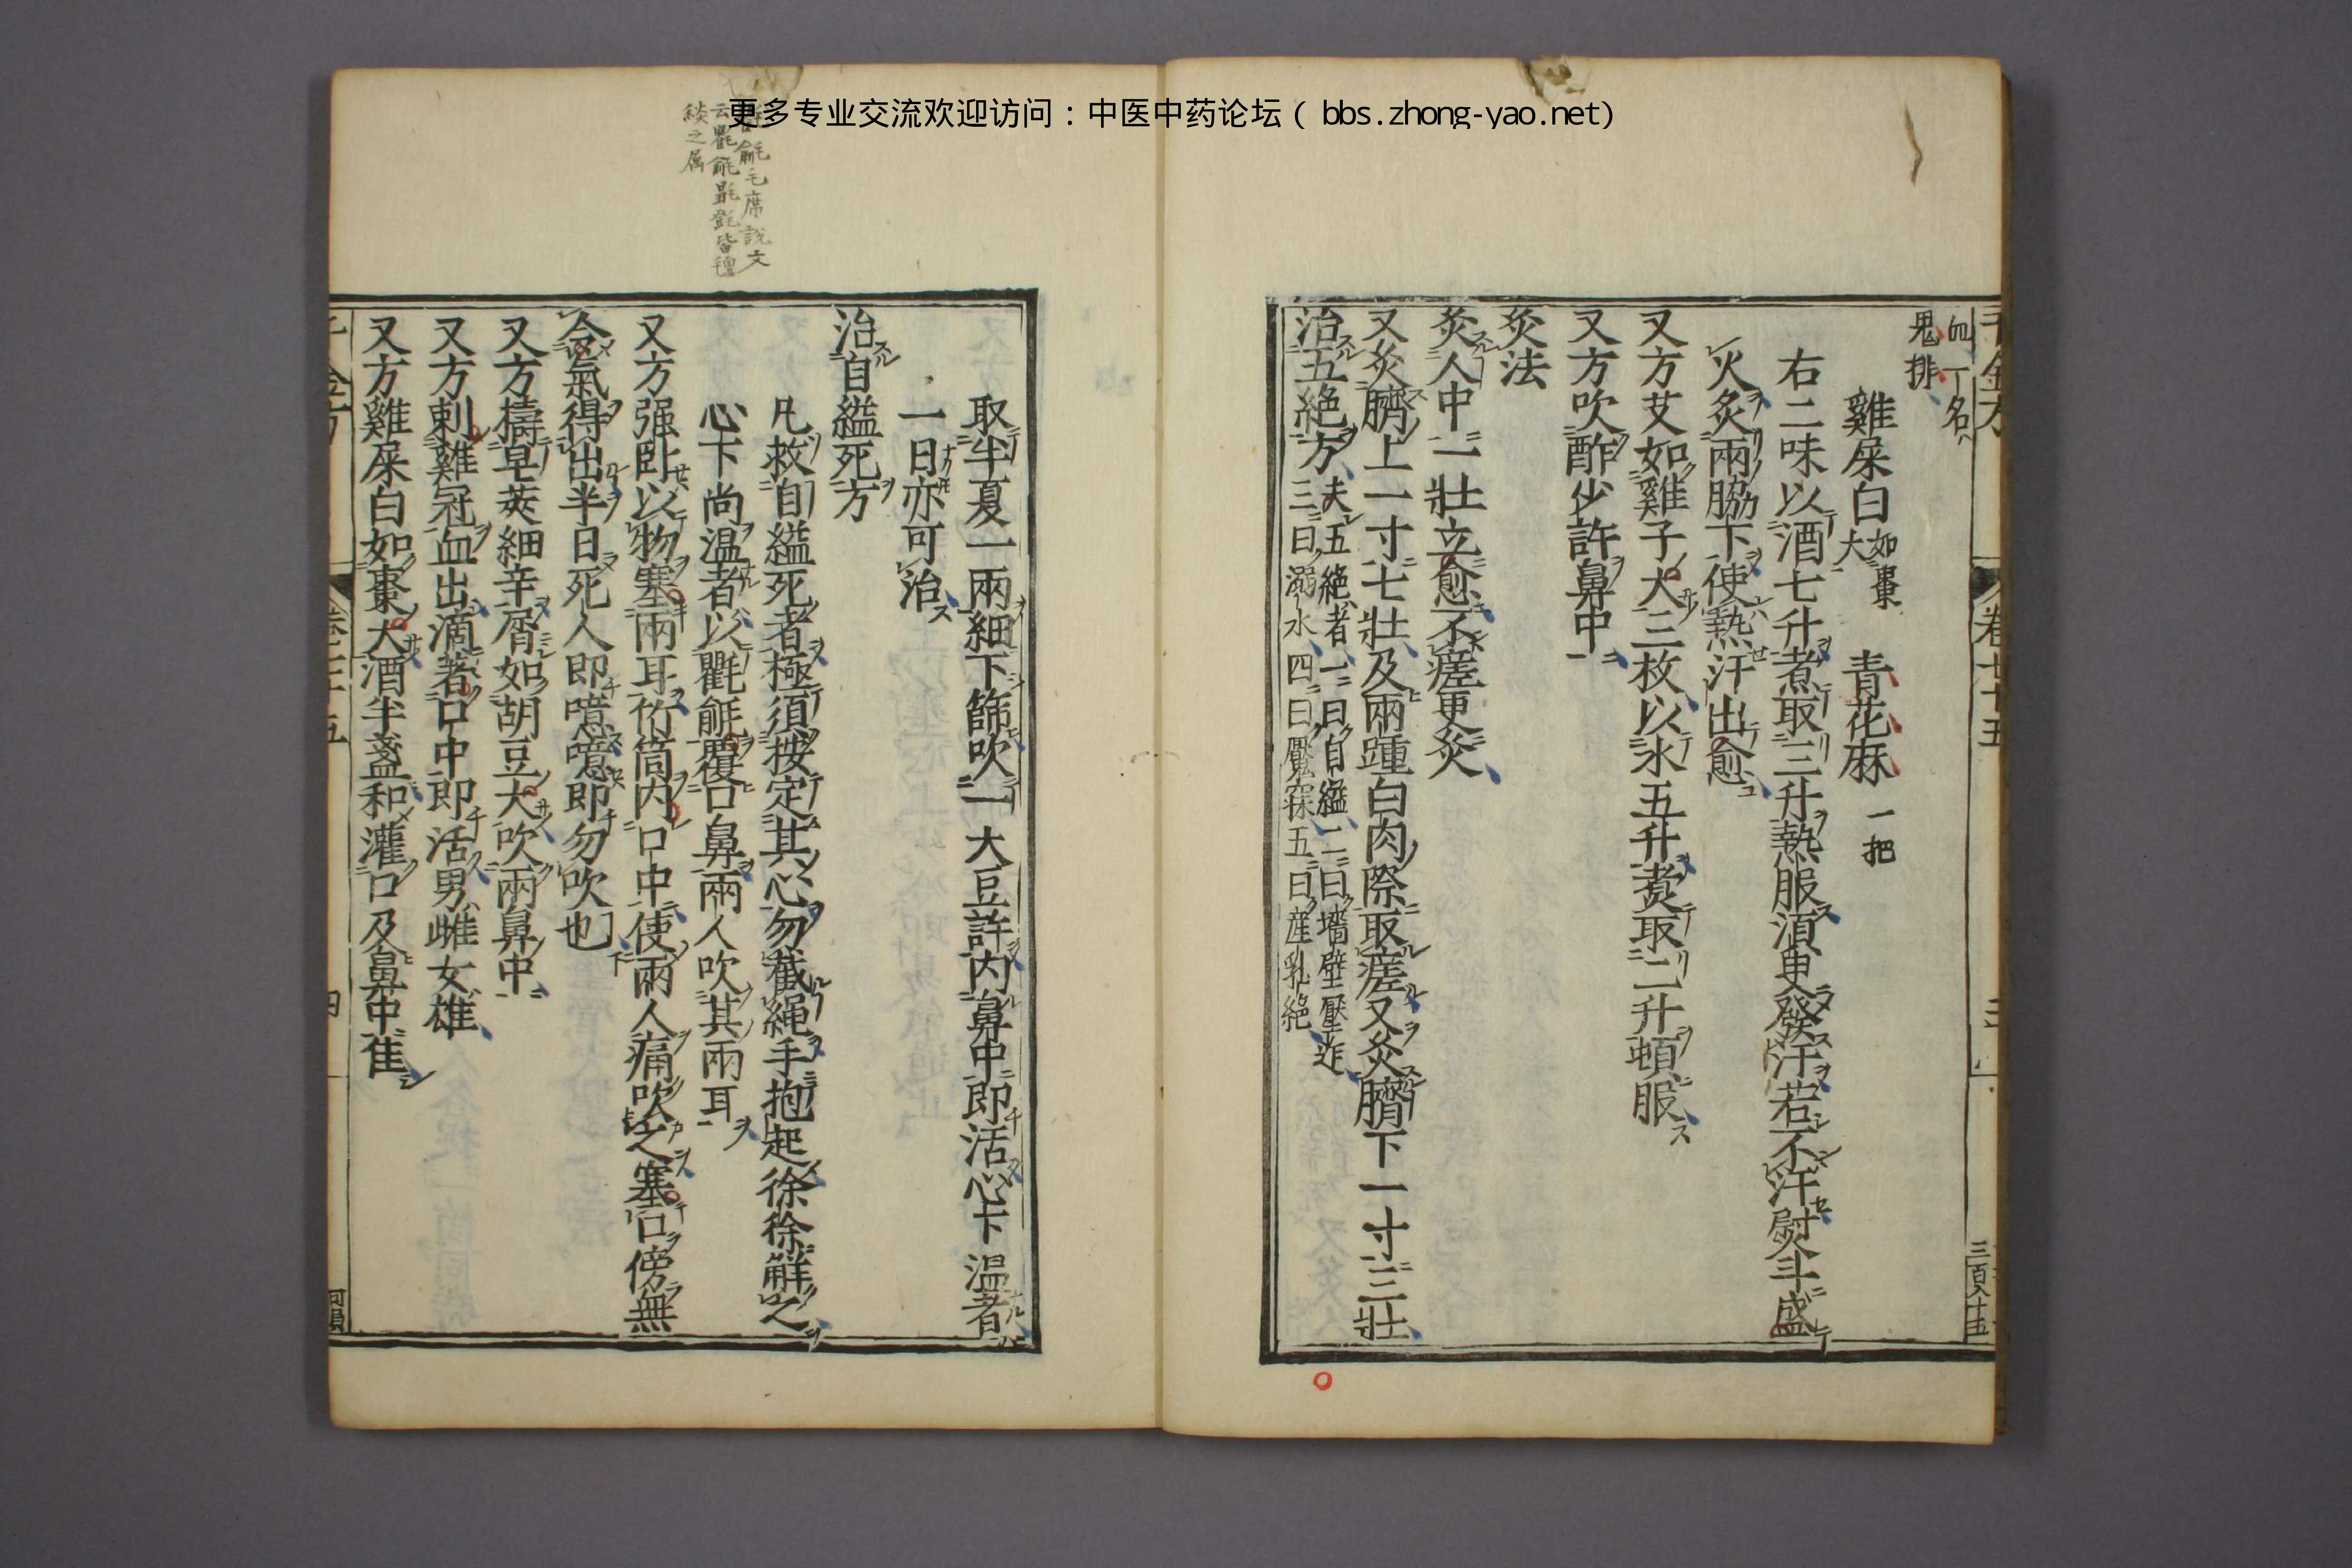 更多专业交流欢迎访问：中医中药论坛（bbs.zhong-yao.net)
血一名
鬼排
雞屎白如棗大 青花麻一把
右二味以酒七升煮取三升熱服須臾發汗若不汗熨斗盛
火炙兩脇下使熱汗出愈
又方艾如雞子大三枚以水五升煑取二升頓服
又方吹酢少許鼻中
灸法
灸人中一壯立愈不瘥更灸
又灸臍上一寸七壯及兩踵白肉際取瘥又灸臍下一寸三壯
治五絶方夫五絶者一曰自縊二曰墻壁壓迮
三曰溺水四曰魘寐五曰産乳絶
卷二十五
取半夏一兩細下篩吹一大豆許内鼻中即活心下温者
一日亦可治
治自縊死方
凡救自縊死者極須按定其心勿截繩手抱起徐徐解之
心下尚温者以氍毹覆口鼻兩人吹其兩耳
又方强卧以物塞兩耳竹筒内口中使兩人痛吹之塞口傍無
令氣得出半日死人即噫噫即勿吹也
又方擣皂莢細辛屑如胡豆大吹兩鼻中
又方刺雞冠血出滴著口中即活男雌女雄
又方雞屎白如棗大酒半盞和灌口及鼻中佳
毹毛席說文
云氍毹㲪㲪皆氊
緂之属